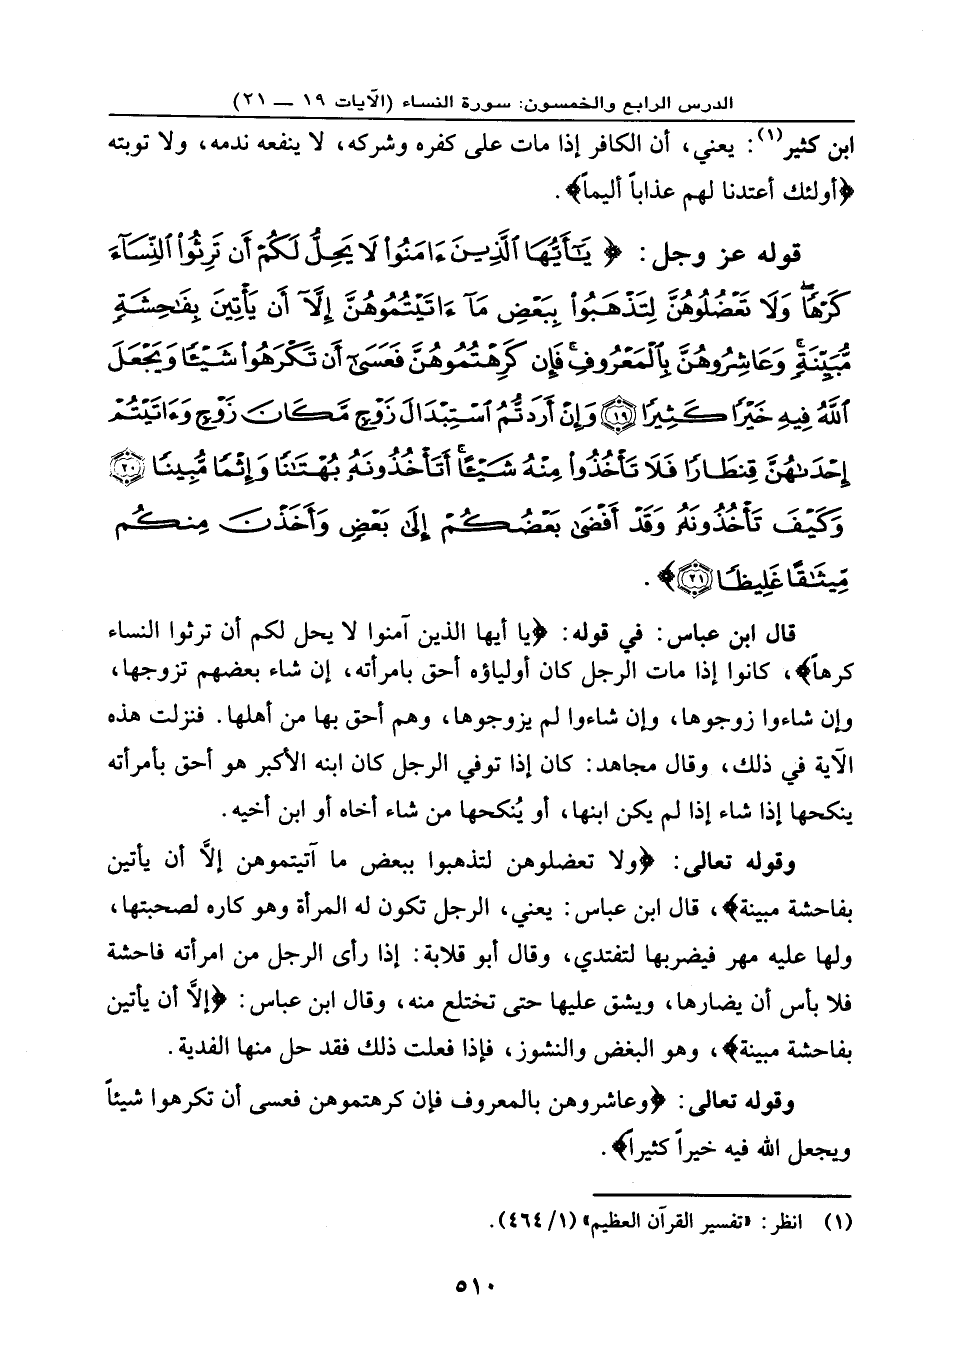 الدرس الرابع والخمسون: سورة النساء (الآيات ١٩ ـــ ٢١)
ابن كثير(١): يعني، أن الكافر إذا مات على كفره وشركه، لا ينفعه ندمه، ولا توبته
﴿أولئك أعتدنا لهم عذاباً أليماً﴾.
قوله عز وجل: ﴿ يَٰٓأَيُّهَا ٱلَّذِينَ ءَامَنُوا۟ لَا يَحِلُّ لَكُمْ أَن تَرِثُوا۟ ٱلنِّسَآءَ
كَرْهًۭا ۖ وَلَا تَعْضُلُوهُنَّ لِتَذْهَبُوا۟ بِبَعْضِ مَآ ءَاتَيْتُمُوهُنَّ إِلَّآ أَن يَأْتِينَ بِفَٰحِشَةٍۢ
مُّبَيِّنَةٍۢ ۚ وَعَاشِرُوهُنَّ بِٱلْمَعْرُوفِ ۚ فَإِن كَرِهْتُمُوهُنَّ فَعَسَىٰٓ أَن تَكْرَهُوا۟ شَيْـًۭٔا وَيَجْعَلَ
ٱللَّهُ فِيهِ خَيْرًۭا كَثِيرًۭا ﴿١٩﴾ وَإِنْ أَرَدتُّمُ ٱسْتِبْدَالَ زَوْجٍۢ مَّكَانَ زَوْجٍۢ وَءَاتَيْتُمْ
إِحْدَىٰهُنَّ قِنطَارًۭا فَلَا تَأْخُذُوا۟ مِنْهُ شَيْـًٔا ۚ أَتَأْخُذُونَهُۥ بُهْتَٰنًۭا وَإِثْمًۭا مُّبِينًۭا ﴿٢٠﴾
وَكَيْفَ تَأْخُذُونَهُۥ وَقَدْ أَفْضَىٰ بَعْضُكُمْ إِلَىٰ بَعْضٍۢ وَأَخَذْنَ مِنكُم
مِّيثَٰقًا غَلِيظًۭا ﴿٢١﴾﴾.
قال ابن عباس: في قوله: ﴿يا أيها الذين آمنوا لا يحل لكم أن ترثوا النساء
كرهاً﴾، كانوا إذا مات الرجل كان أولياؤه أحق بامرأته، إن شاء بعضهم تزوجها،
وإن شاءوا زوجوها، وإن شاءوا لم يزوجوها، وهم أحق بها من أهلها. فنزلت هذه
الآية في ذلك، وقال مجاهد: كان إذا توفي الرجل كان ابنه الأكبر هو أحق بأمرأته
ينكحها إذا شاء إذا لم يكن ابنها، أو يُنكحها من شاء أخاه أو ابن أخيه.
وقوله تعالى: ﴿ولا تعضلوهن لتذهبوا ببعض ما آتيتموهن إلاَّ أن يأتين
بفاحشة مبينة﴾، قال ابن عباس: يعني، الرجل تكون له المرأة وهو كاره لصحبتها،
ولها عليه مهر فيضربها لتفتدي، وقال أبو قلابة: إذا رأى الرجل من امرأته فاحشة
فلا بأس أن يضارها، ويشق عليها حتى تختلع منه، وقال ابن عباس: ﴿إلاَّ أن يأتين
بفاحشة مبينة﴾، وهو البغض والنشوز، فإذا فعلت ذلك فقد حل منها الفدية.
وقوله تعالى: ﴿وعاشروهن بالمعروف فإن كرهتموهن فعسى أن تكرهوا شيئاً
ويجعل الله فيه خيراً كثيراً﴾.
(١) انظر: «تفسير القرآن العظيم» (١/ ٤٦٤).
٥١٠